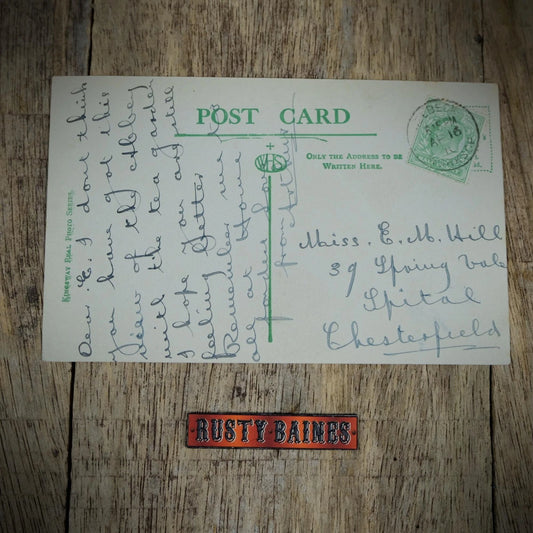 POST CARD
WHS
ONLY THE ADDRESS TO BE
WRITTEN HERE.
KINGSWAY REAL PHOTO SERIES.
Dear E. I dont think
you have got this
view of the Abbey
with the tea garden
I hope you are still
feeling better
Remember me to
all at home
love
from Arthur
Miss. E. M. Hill
39 Spring Vale
Spital
Chesterfield
RUSTY·BAINES